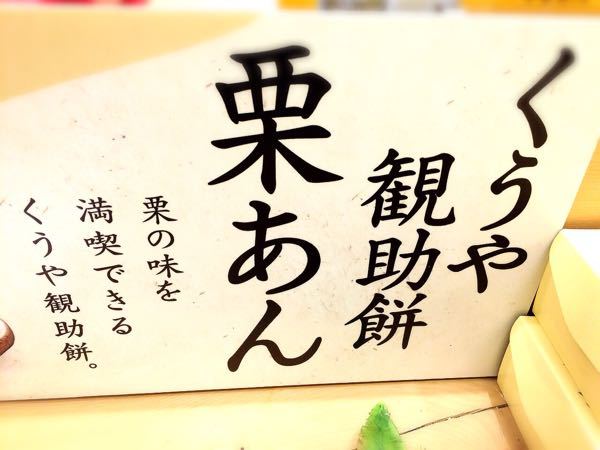 くうや
観助餅
栗あん
栗の味を
満喫できる
くうや観助餅。